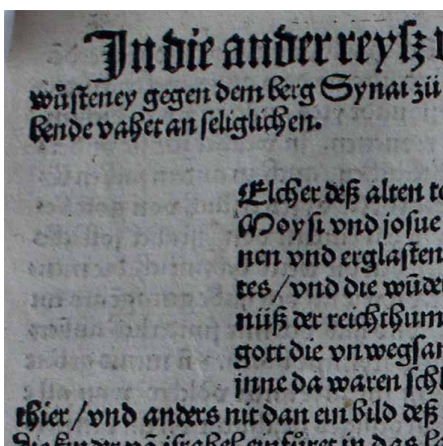 In die ander reyſz
wůſteney gegen dem berg Synai zü
bende vahet an ſeliglichen.
Elcher deß alten
Moyſi vnd joſue
nen vnd erglaſten
tes/vnd die wůde
nüß der reichthum
gott die vnwegſan
jnne da waren ſchl
thier/vnd anders nit dan ein bild deß